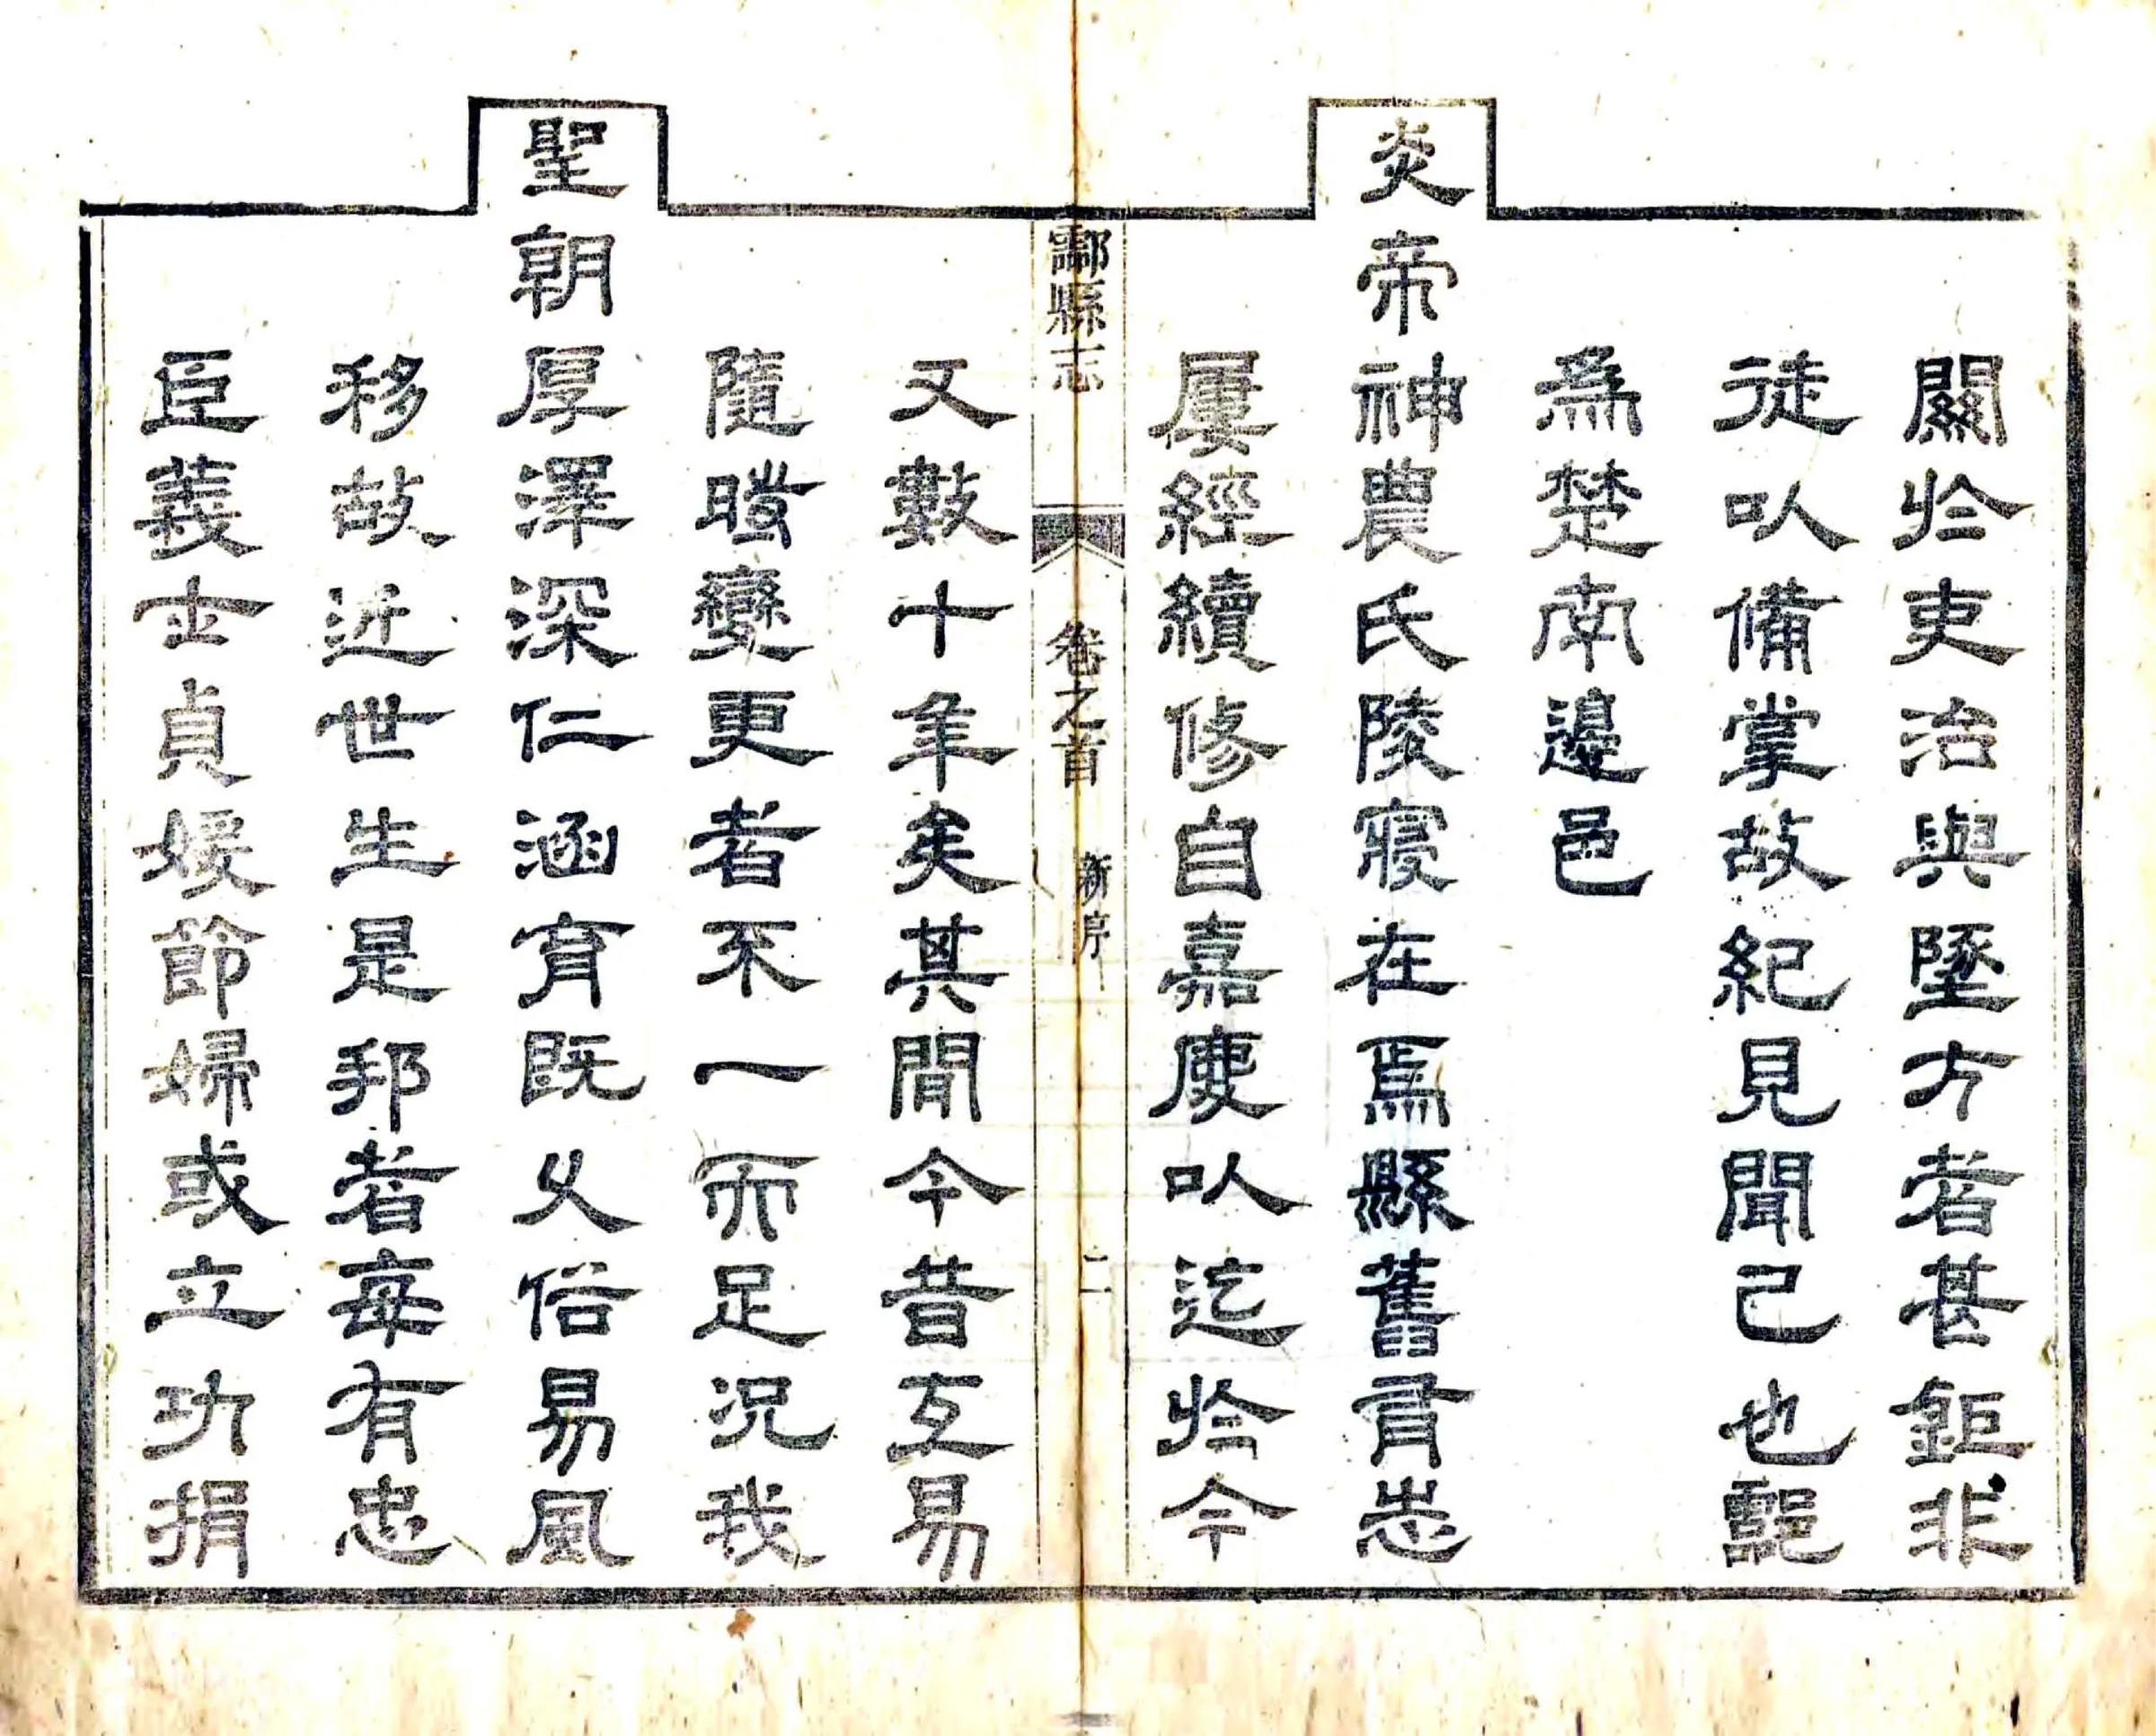 關於吏治與墬方者甚鉅非
徒以備掌故紀見聞已也酃
為楚南邊邑
炎帝神農氏陵寢在焉縣舊有志
屢經續修自嘉慶以迄於今
酃縣志 卷之首 新序 二
又數十年矣其閒今昔互易
隨時變更者不一而足況我
聖朝厚澤深仁涵育既久俗易風
移故近世生是邦者每有忠
臣義士貞媛節婦或立功捐